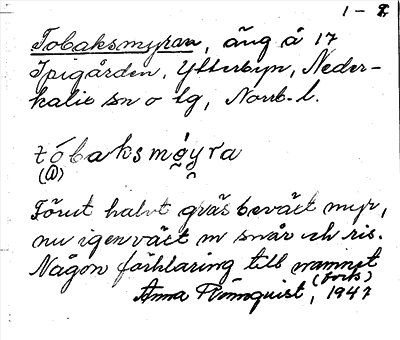 1 - 2
Tobaksmyran, äng å 17
Spigården, Ytterbyn, Neder-
kalix sn o lg, Norrb. l.
tóbaksmo̰yra
(a)
Förut halvt gräsbeväxt myr,
nu igenväxt m snår och ris.
Någon förklaring till namnet
(forts)
Anna Rönnquist, 1947